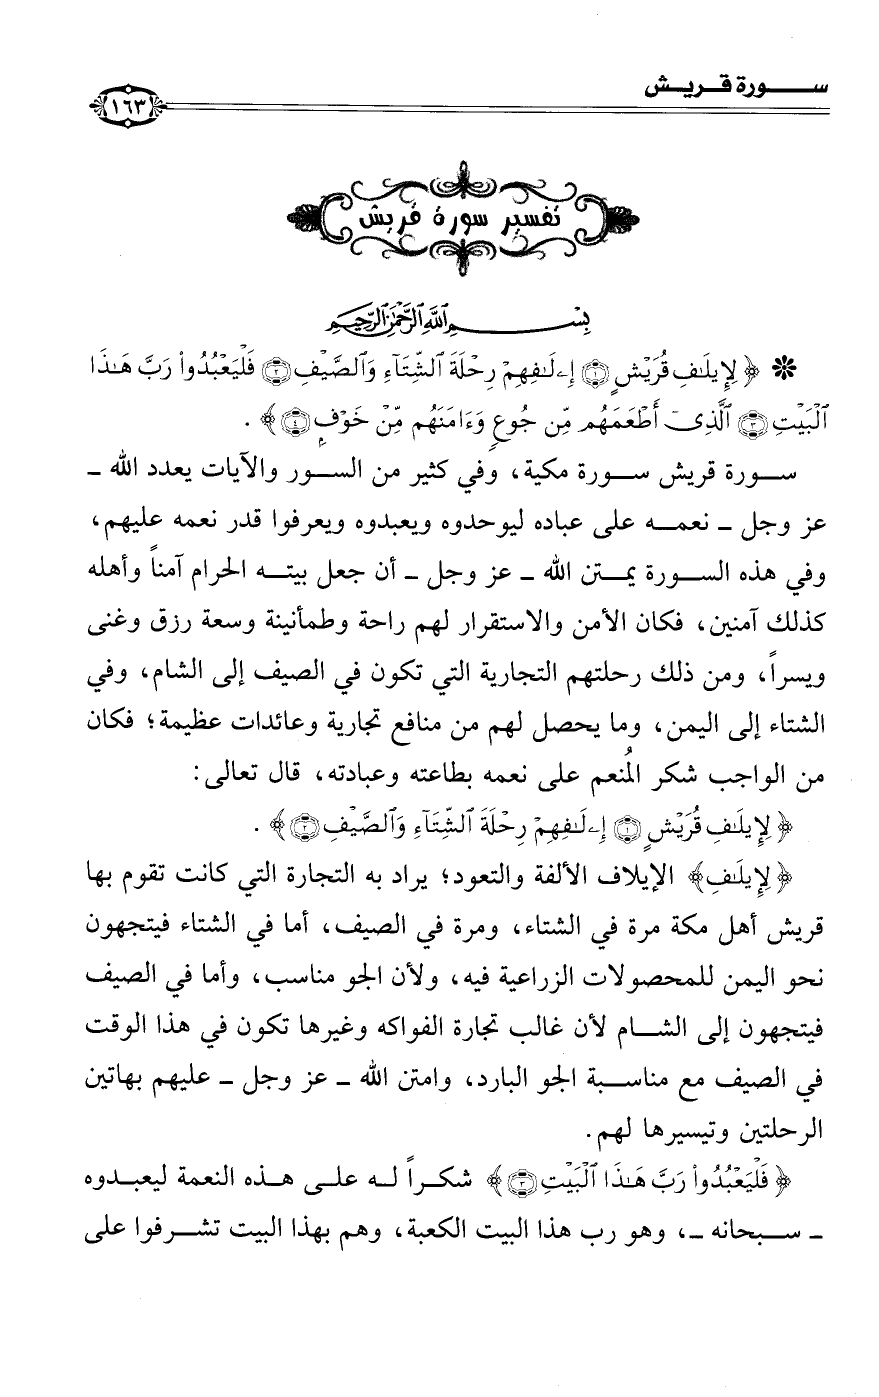 ســــورة قـريـش
١٦٣
تفسير سورة قريش
بِسْــــــمِ ٱللَّهِ ٱلرَّحْمَٰنِ ٱلرَّحِيمِ
❊ ﴿ لِإِيلَٰفِ قُرَيْشٍ ۝١ إِۦلَٰفِهِمْ رِحْلَةَ ٱلشِّتَآءِ وَٱلصَّيْفِ ۝٢ فَلْيَعْبُدُوا۟ رَبَّ هَٰذَا
ٱلْبَيْتِ ۝٣ ٱلَّذِىٓ أَطْعَمَهُم مِّن جُوعٍ وَءَامَنَهُم مِّنْ خَوْفٍۭ ۝٤ ﴾ .
ســورة قريش ســورة مكية، وفي كثير من السور والآيات يعدد الله ـ
عز وجل ـ نعمــه على عباده ليوحدوه ويعبدوه ويعرفوا قدر نعمه عليهم،
وفي هذه الســورة يمــتن الله ـ عز وجل ـ أن جعل بيتــه الحرام آمناً وأهله
كذلك آمنين، فكان الأمن والاستقرار لهم راحة وطمأنينة وسعة رزق وغنى
ويسراً، ومن ذلك رحلتهم التجارية التي تكون في الصيف إلى الشام، وفي
الشتاء إلى اليمن، وما يحصل لهم من منافع تجارية وعائدات عظيمة؛ فكان
من الواجب شكر المُنعم على نعمه بطاعته وعبادته، قال تعالى:
﴿ لِإِيلَٰفِ قُرَيْشٍ ۝١ إِۦلَٰفِهِمْ رِحْلَةَ ٱلشِّتَآءِ وَٱلصَّيْفِ ۝٢ ﴾ .
﴿لِإِيلَٰفِ﴾ الإيلاف الألفة والتعود؛ يراد به التجارة التي كانت تقوم بها
قريش أهل مكة مرة في الشتاء، ومرة في الصيف، أما في الشتاء فيتجهون
نحو اليمن للمحصولات الزراعية فيه، ولأن الجو مناسب، وأما في الصيف
فيتجهون إلى الشــام لأن غالب تجارة الفواكه وغيرها تكون في هذا الوقت
في الصيف مع مناســبة الجو البارد، وامتن الله ـ عز وجل ـ عليهم بهاتين
الرحلتين وتيسيرها لهم.
﴿ فَلْيَعْبُدُوا۟ رَبَّ هَٰذَا ٱلْبَيْتِ ۝٣ ﴾ شكــراً لــه علــى هــذه النعمة ليعبــدوه
ـ ســبحانه ـ، وهو رب هذا البيت الكعبة، وهم بهذا البيت تشــرفوا على